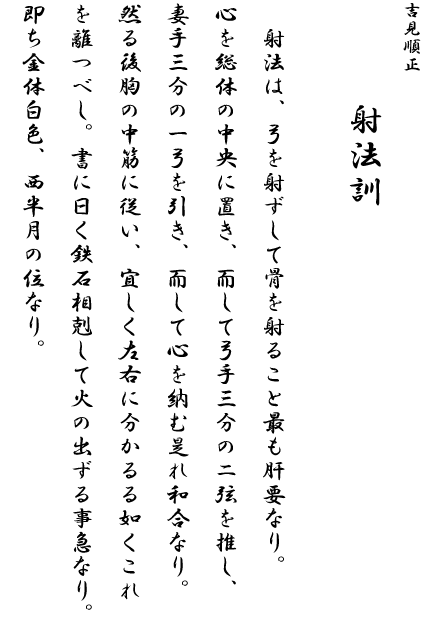 吉見順正
射法訓
射法は、弓を射ずして骨を射ること最も肝要なり。
心を総体の中央に置き、而して弓手三分の二弦を推し、
妻手三分の一弓を引き、而して心を納む是れ和合なり。
然る後胸の中筋に従い、宜しく左右に分かるる如くこれ
を離つべし。書に曰く鉄石相剋して火の出ずる事急なり。
即ち金体白色、西半月の位なり。